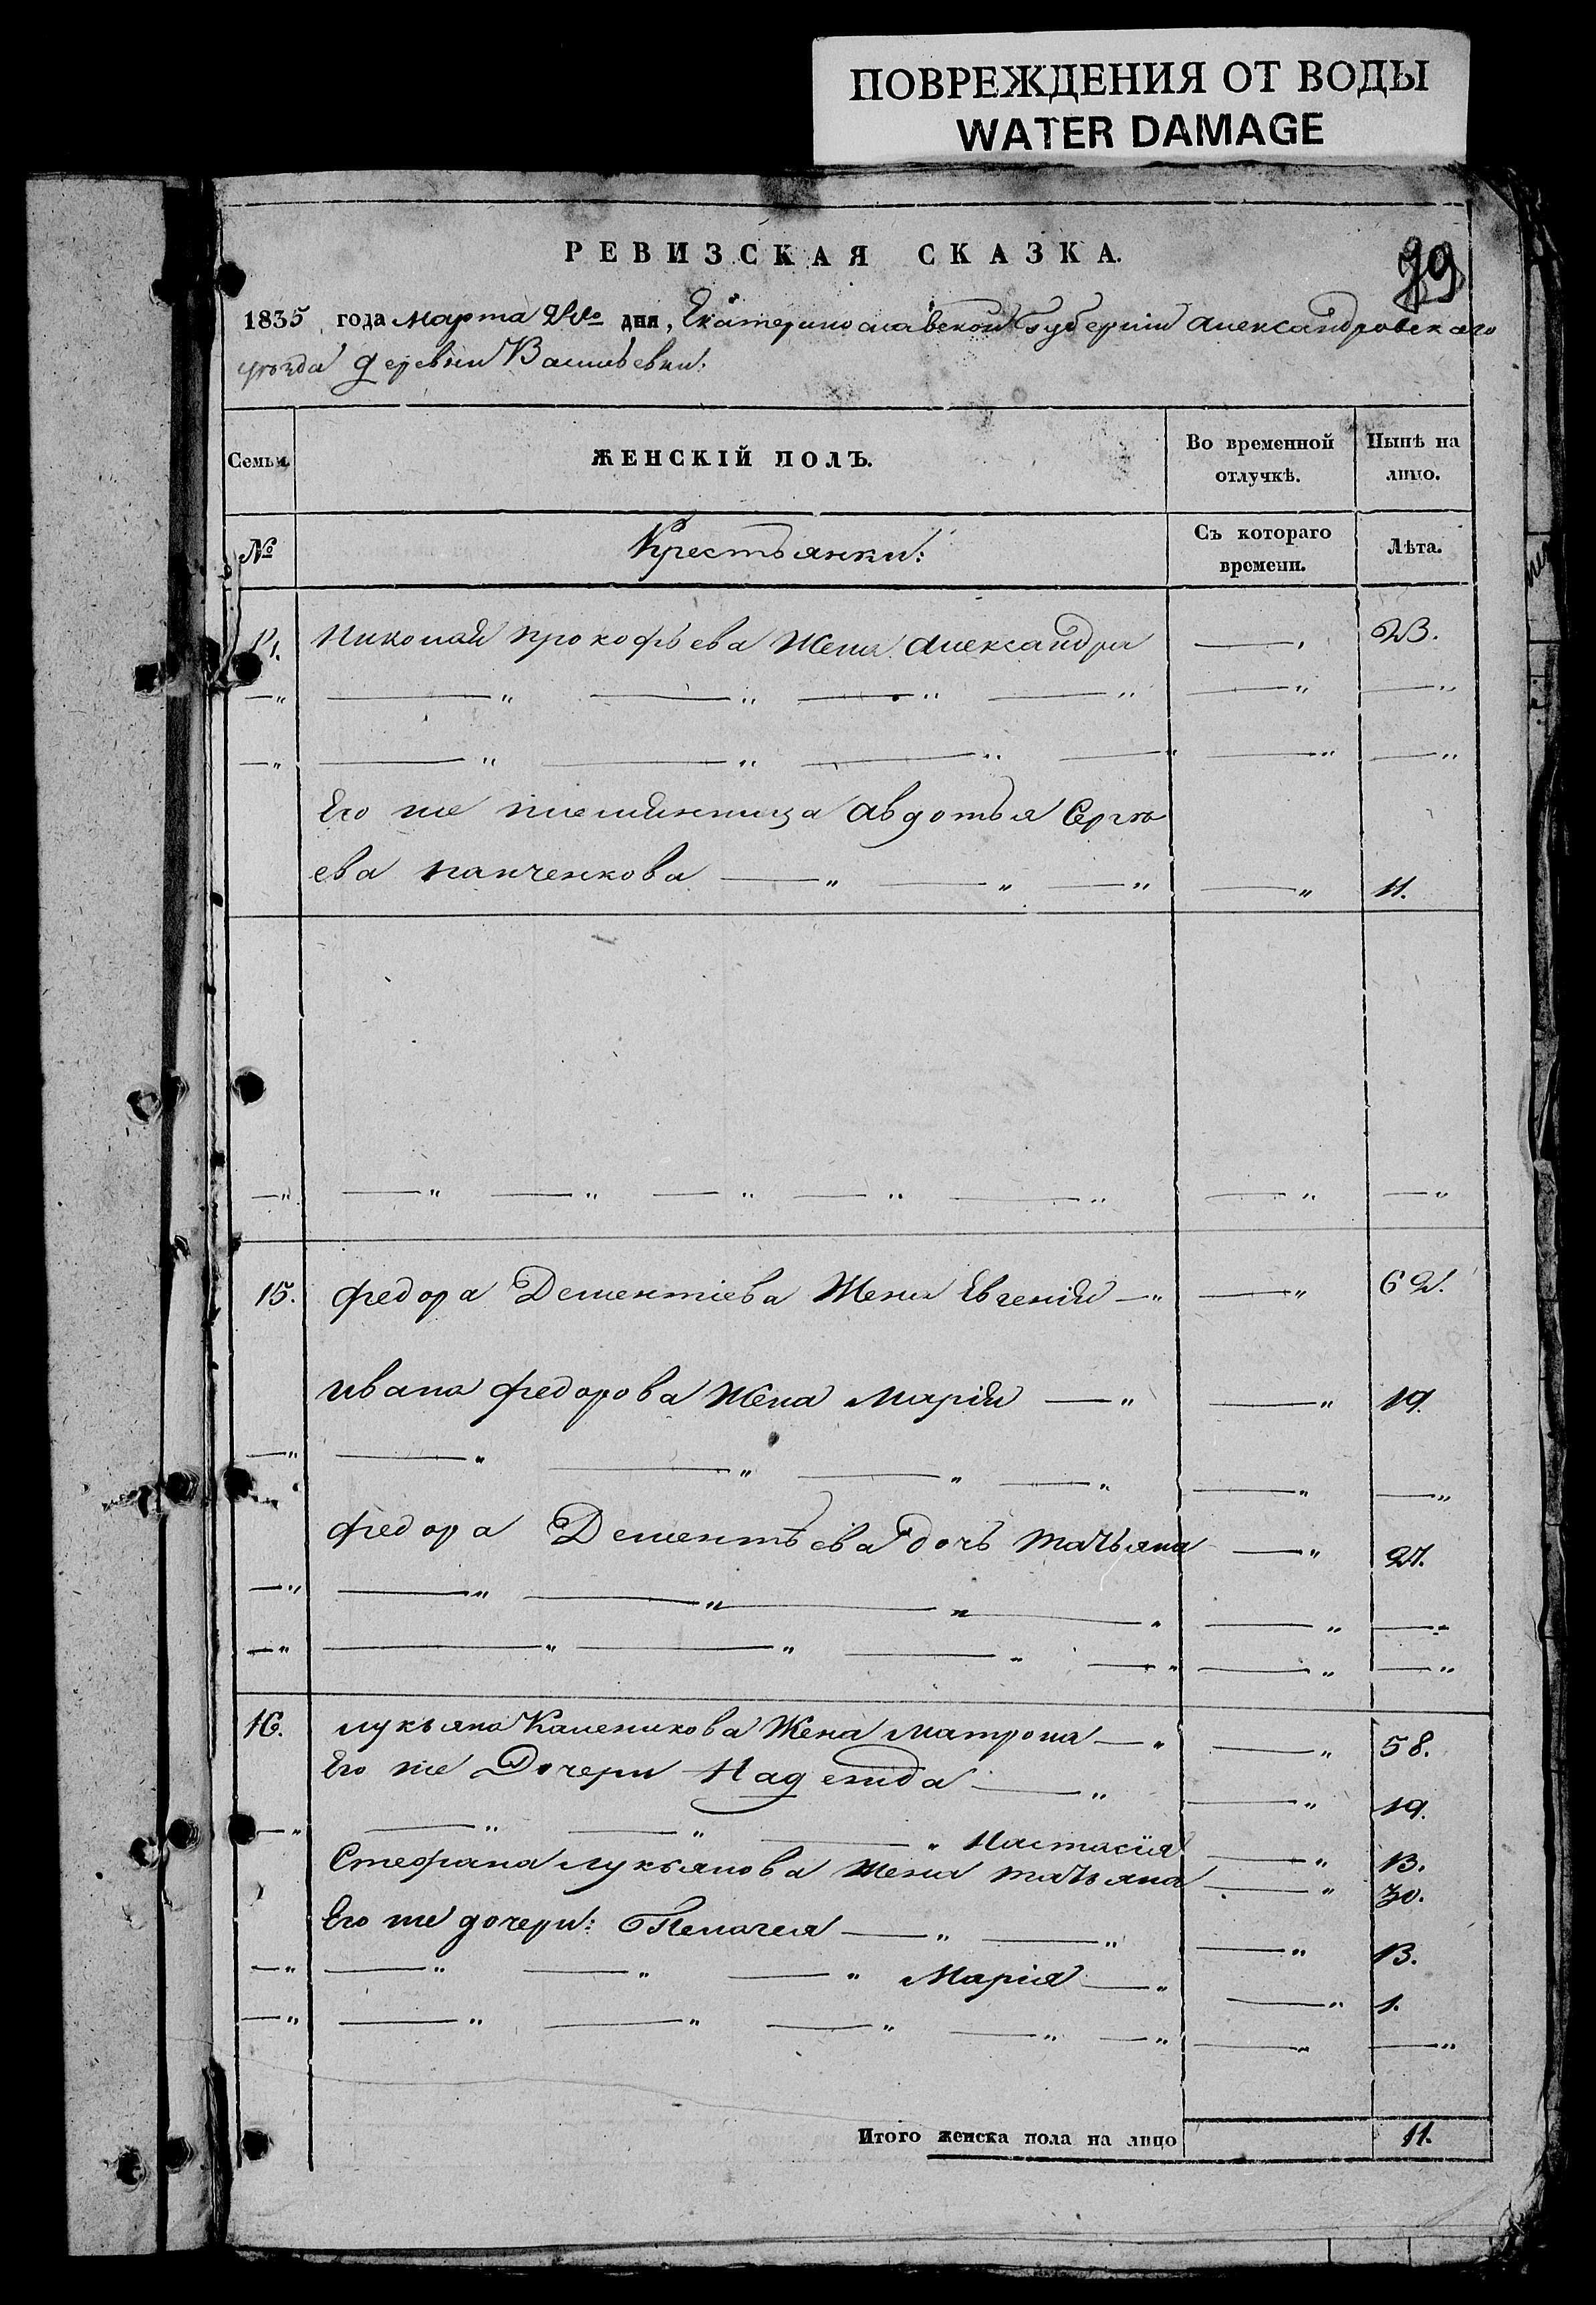 ПОВРЕЖДЕНИЯ ОТ ВОДЫ
WATER DAMAGE
РЕВИЗСКАЯ СКАЗКА.
1835 года Марта дня, Екатеринославской Губерніи Александровскаго
уѣзда деревни Васильевки.
Семьи. ЖЕНСКІЙ ПОЛЪ. Во временной отлучкѣ. Нынѣ на лицо.
№ Крестьянки: Съ котораго времени. Лѣта.
Николая Прокофьева Жена Александра — 23.
Его же племянница Авдотья Сергѣ
ева Панченкова — " — " — " — " 11.
15. Федора Дементіева Жена Евгенія — " — " 62.
Ивана Федорова Жена Марія — " — " 19.
Федора Дементьева дочь Татьяна — " 27.
16. Лукьяна Каленикова Жена Матрона — " — " 58.
Его же Дочери Надежда — " — " 19.
— " — " — " — " Настасія — " 13.
Стефана Лукьянова Жена Татьяна — " 30.
Его же дочери: Пелагея — " — " — " 13.
— " — " — " — " Марія — " — " 1.
Итого женска пола на лицо 11.